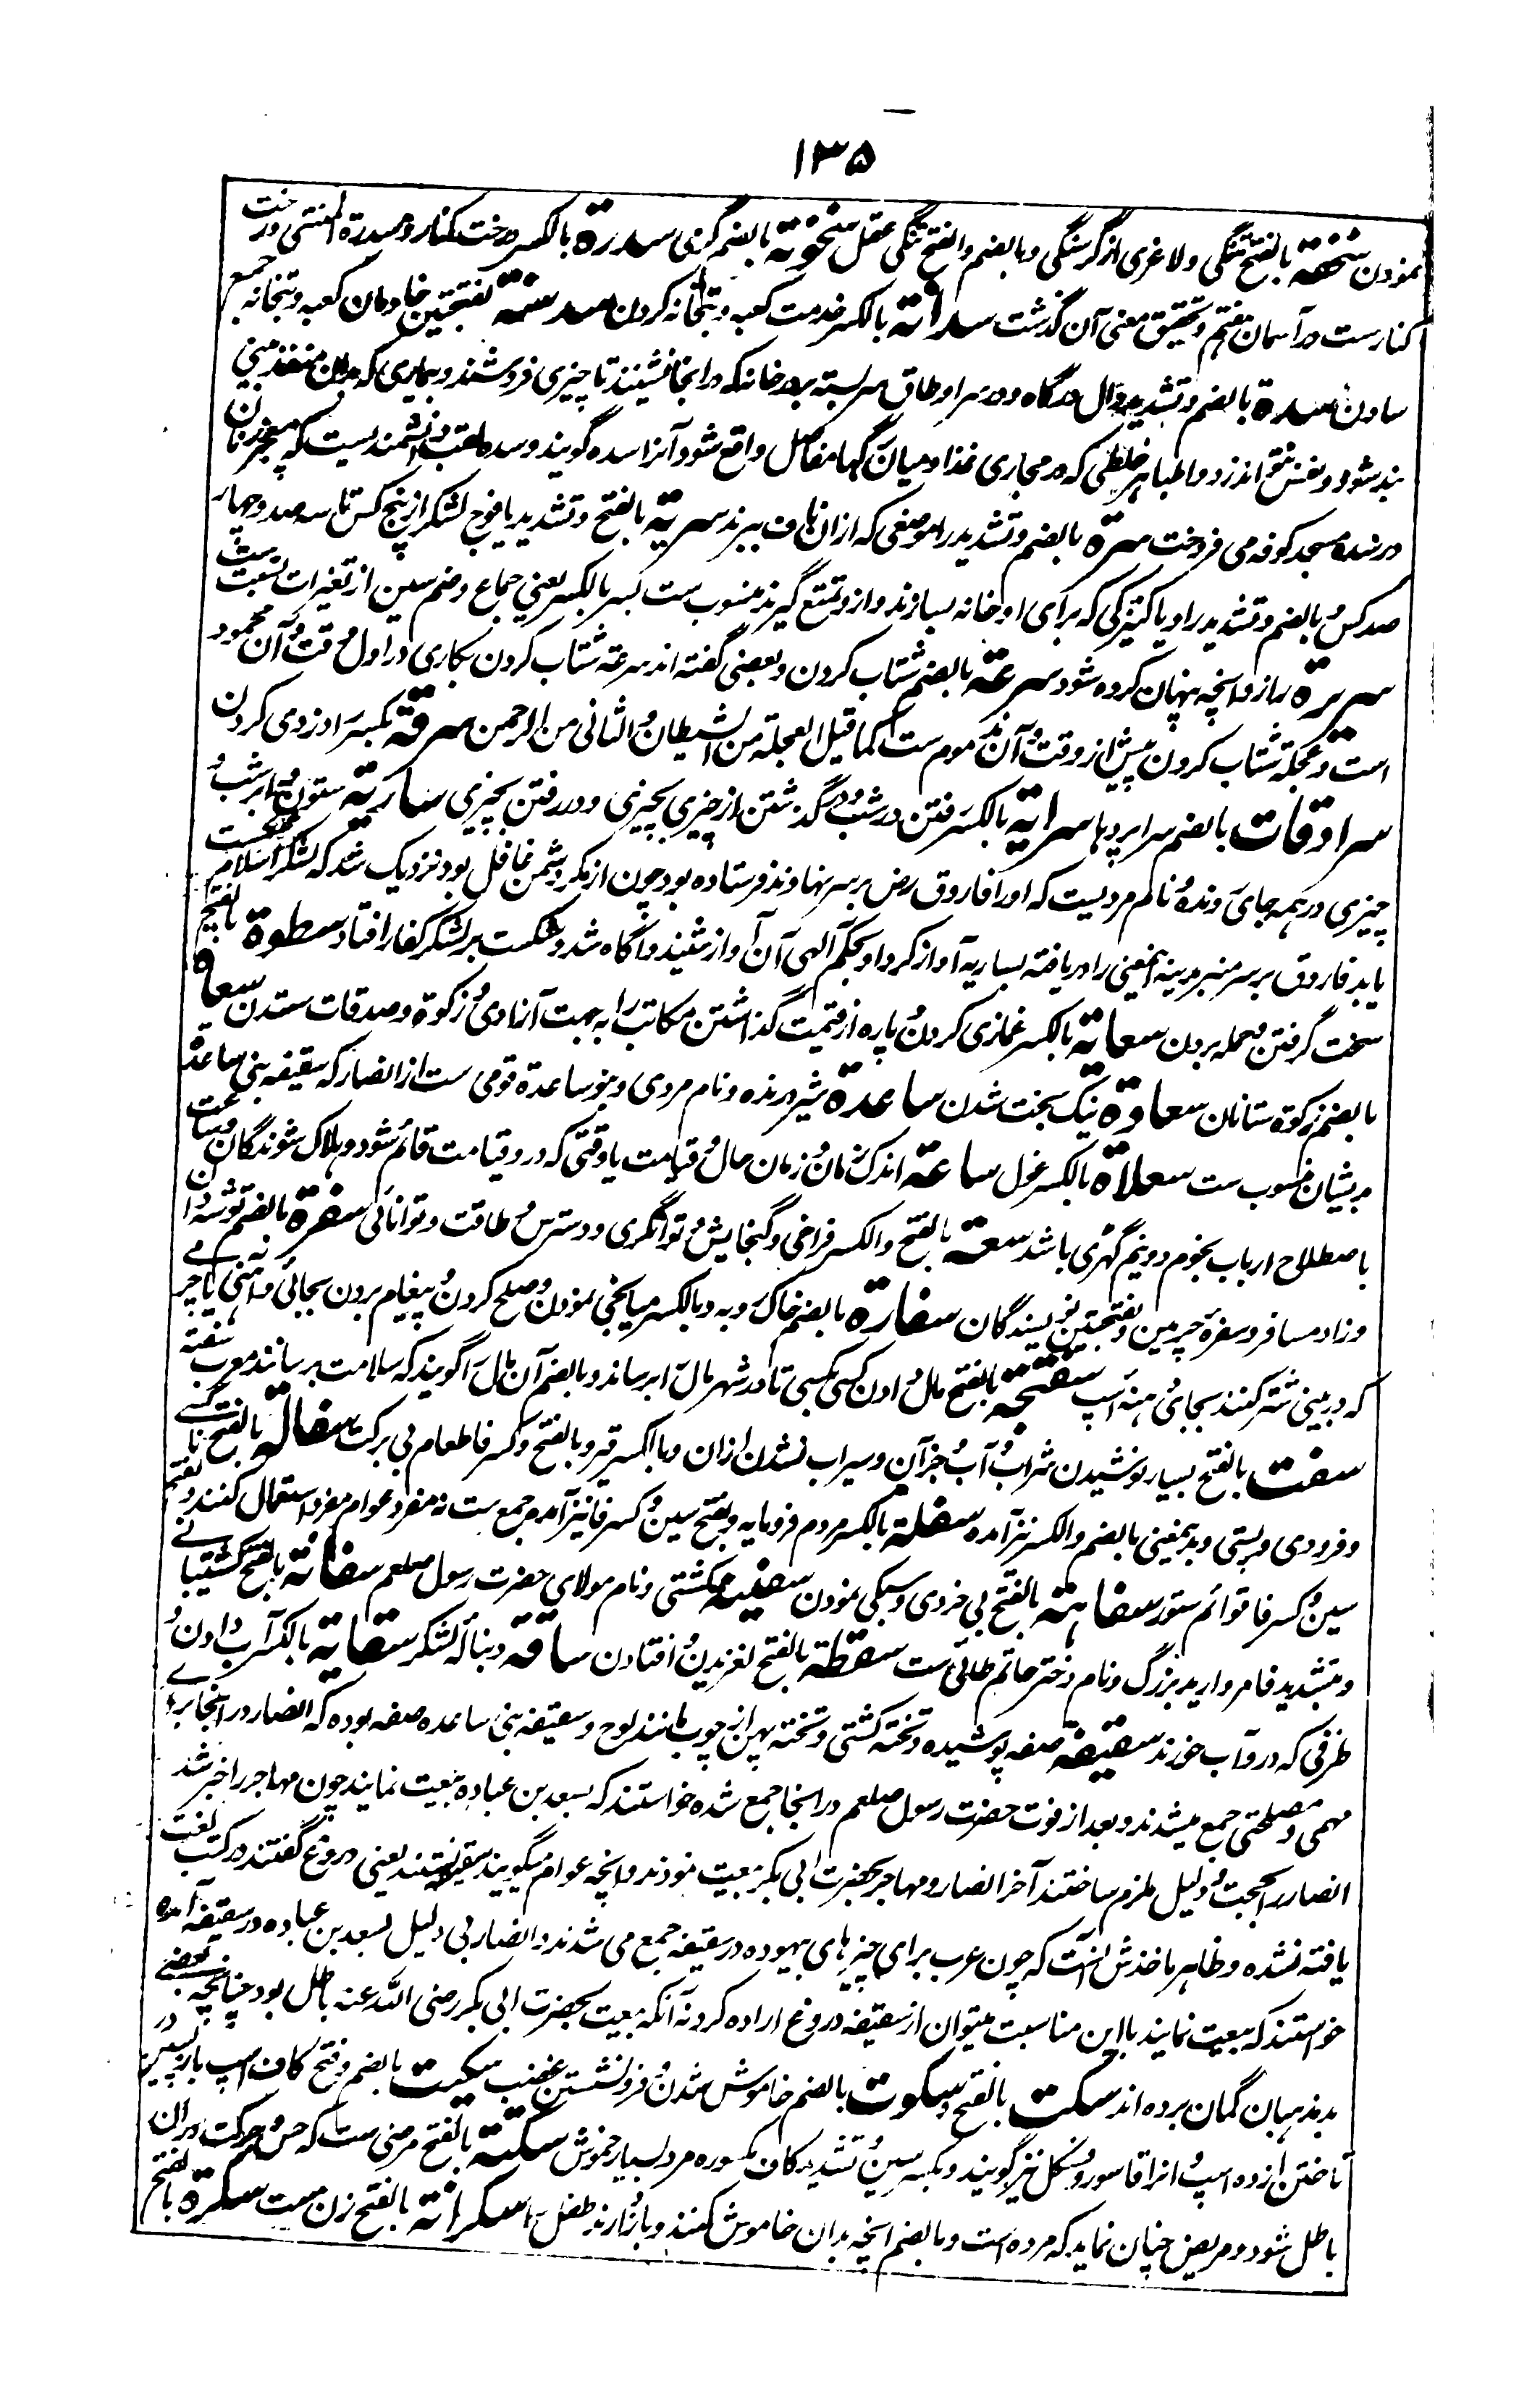 ۱۳۵
نمودن سخفة بالفتح تنگی ولاغری از گرسنگی وبالضم والفتح تنگی عقل سخونة بالضم گرمی سدرة بالکسر درخت کنار وسدرة المنتهی درخت
کنارست در آسمان هفتم وتحقیق معنی آن گذشت سدانة بالکسر خدمت کعبه وبتخانه کردن سدنة بفتحتین خادمان کعبه وبتخانه جمع
سادن سدة بالضم وتشدید دال درگاه ودر سرا وطاق سر بسته بر در خانه که در انجا نشینند تا چیزی فروشند وبیماری که بدان منفذ بینی
بند شود ونفس تنگ اندازد واطبا هر خلطی که در مجاری غذا ومیان رگها مفاصل واقع شود آنرا سده گویند وسده لقب دانشمندیست که معجر زنان
در سدهٔ مسجد کوفه می فروخت سرة بالضم وتشدید را موضعی که ازان ناف ببرند سریة بالفتح وتشدید یا فوج لشکر از پنج کس تا سه صد وچهار
صد کس وبالضم وتشدید را ویا کنیزکی که برای او خانه بسازند وازو تمتع گیرند منسوب ست بسر بالکسر یعنی جماع وضم سین از تغیرات نسبت ست
سریرة راز وآنچه پنهان کرده شود سرعة بالضم شتاب کردن وبعضی گفته اند سرعة شتاب کردن بکاری در اول وقت وآن محمود
است وعجلة شتاب کردن پیش از وقت وآن مذموم ست کما قیل العجلة من الشیطان والتانی من الرحمن سرقة بکسر را دزدی کردن
سرادقات بالضم سراپردها سرایة بالکسر رفتن در شب ودر گذشتن از چیزی بچیزی ودر رفتن بچیزی ساریة ستون وابر شب و
چیزی در همه جای رونده ونام مردیست که اورا فاروق رض بر سر نهاوند فرستاده بود چون از مکر دشمن غافل بود نزدیک شد که لشکر اسلام شکست
یابد فاروق بر سر منبر مدینه اینمعنی را دریافته بساریه آواز کرد او بحکم الهی آن آواز شنید وآگاه شد وشکست بر لشکر کفار افتاد سطوة بالفتح
سخت گرفتن وحمله بردن سعایة بالکسر غمازی کردن و پاره از قیمت گذاشتن مکاتب را به جهت آزادی و زکوة وصدقات ستدن سعاة
بالضم زکوة ستانان سعادة نیک بخت شدن ساعدة شیر درنده ونام مردی وبنو ساعدة قومی ست از انصار که سقیفه بنی ساعدة
بدیشان منسوب ست سعلاة بالکسر غول ساعة اندک زمان و زمان حال و قیامت یا وقتی که درو قیامت قائم شود وهلاک شوندگان وساعت
باصطلاح ارباب نجوم دو نیم گهڑی باشد سعة بالفتح والکسر فراخی وگنجایش و توانگری ودسترس و طاقت وتوانائی سفرة بالضم توشه دان
وزاد مسافر وسفرهٔ چرمین وبفتحتین نویسندگان سفارة بالضم خاک روبه وبالکسر میانجی نمودن وصلح کردن و پیغام بردن بجائی وآهنی یا چرمے
که در بینی شتر کنند بجای دهنهٔ اسپ سفتجة بالفتح مال دادن کسی بکسی تا در شهر مال را برساند وبالضم آن مال را گویند که سلامت برسانند معرب سفته
سفت بالفتح بسیار نوشیدن شراب و آب و جز آن وسیراب نشدن ازان وبالکسر قیر وبالفتح وکسر فا طعام بی برکت سفالة بالفتح ناکسے
وفرودی وپستی وبدینمعنی بالضم والکسر نیز آمده سفلة بالکسر مردم فرومایه وبفتح سین و کسر فا نیز آمده جمع ست نه مفرد وعوام مفرد استعمال کنند وبفتح
سین و کسر فا قوائم ستور سفاهة بالفتح بی خردی وسبکی نمودن سفینة کشتی ونام مولای حضرت رسول صلعم سفانة بالفتح کشتیبانے
وبتشدید فا مروارید بزرگ ونام دختر حاتم طائی ست سقطة بالفتح لغزیدن و افتادن ساقة دنبالهٔ لشکر سقایة بالکسر آب دادن و
ظرفی که درو آب خورند سقیفة صفه پوشیده وتخته کشتی وتخته پهن از چوب مانند لوح وسقیفه بنی ساعده صفه بوده که انصار در انجا برای
مهمی ومصلحتی جمع میشدند وبعد از فوت حضرت رسول صلعم در انجا جمع شده خواستند که بسعد بن عباده بیعت نمایند چون مهاجر را خبر شد
انصار را بحجت ودلیل ملزم ساختند آخر انصار ومهاجر بحضرت ابی بکر بیعت نمودند وآنچه عوام میگویند سقیفه بستند یعنی دروغ گفتند در کتب لغت
یافته نشده وظاهر ماخذش آنست که چون عرب برای چیزهای بیهوده در سقیفه جمع می شدند وانصار بی دلیل بسعد بن عباده در سقیفه آمده
خواستند که بیعت نمایند با این مناسبت میتوان از سقیفه دروغ اراده کرد نه آنکه بیعت بحضرت ابی بکر رضی الله عنه باطل بود چنانچه بعضے
بدمذهبان گمان برده اند سکت بالفتح وسکوت بالضم خاموش شدن و فرو نشستن غضب سکیت بالضم وفتح کاف اسپ بازپسین در
تاختن از ده اسپ و انرا قاسور وفسکل نیز گویند وبکسر سین و تشدید کاف مکسوره مرد بسیار خموش سکتة بالفتح مرضی ست که حس و حرکت دران
باطل شود ومریض چنان نماید که مرده است وبالضم آنچه بدان خاموش کنند وبازدارند طفل را سکرانة بالفتح زن مست سکرة بالفتح